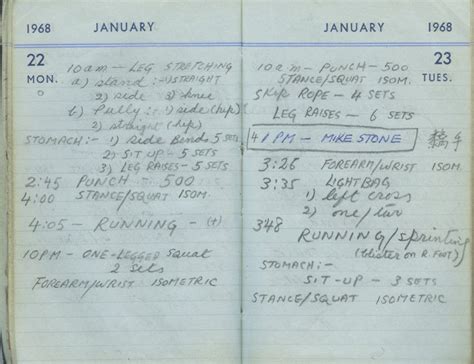 1968 JANUARY
22
MON.
10 am — LEG STRETCHING
a) stand :- 1) STRAIGHT
2) side 3) knee
b) Pully :- 1) side (hip)
2) straight (hip)
STOMACH :- 1) SIDE Bends 5 SETS
2) SIT UP - 5 SETS
3) LEG RAISES - 5 SETS
2:45 PUNCH — 500
4:00 STANCE/SQUAT ISOM.
4:05 — RUNNING -
10 PM — ONE-LEGGED Squat
2 sets
FOREARM/WRIST ISOMETRIC
JANUARY 1968
23
TUES.
10 a.m — PUNCH — 500
STANCE/SQUAT ISOM.
SKIP ROPE — 4 SETS
LEG RAISES — 6 SETS
PM — MIKE STONE
3:26 FOREARM/WRIST ISOM.
3:35 LIGHT BAG
1) left cross
2) one/
348
RUNNING/sprinting
(blister on R. FOOT)
STOMACH :-
SIT-UP — 3 SETS
STANCE/SQUAT ISOMETRIC